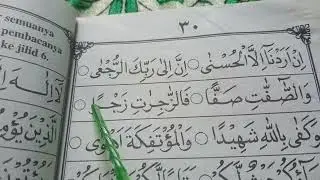 semuanya
pembacanya
ke jilid 6.
٣٠
اِنْ اَرَدْنَآ اِلَّا الْحُسْنٰى ○ اِنَّ اِلٰى رَبِّكَ الرُّجْعٰى ○
وَالصّٰٓفّٰتِ صَفًّا ○ فَالزّٰجِرٰتِ زَجْرًا ○
وَكَفٰى بِاللّٰهِ شَهِيْدًا ○ وَالْمُؤْتَفِكَةَ اَهْوٰى ○
لَآ اِلٰهَ
الَّذِيْنَ